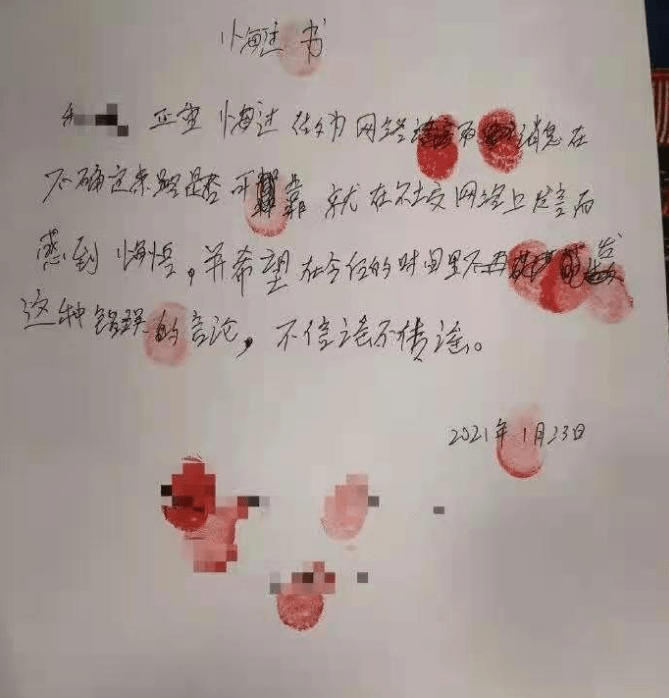 悔过书
正重悔过 网络 消息在
不确定来路是否可靠 就在社交网络上发言而
感到悔悟,并希望在今后的时间里不再 发
这种错误的言论,不信谣不传谣。
2021年1月23日